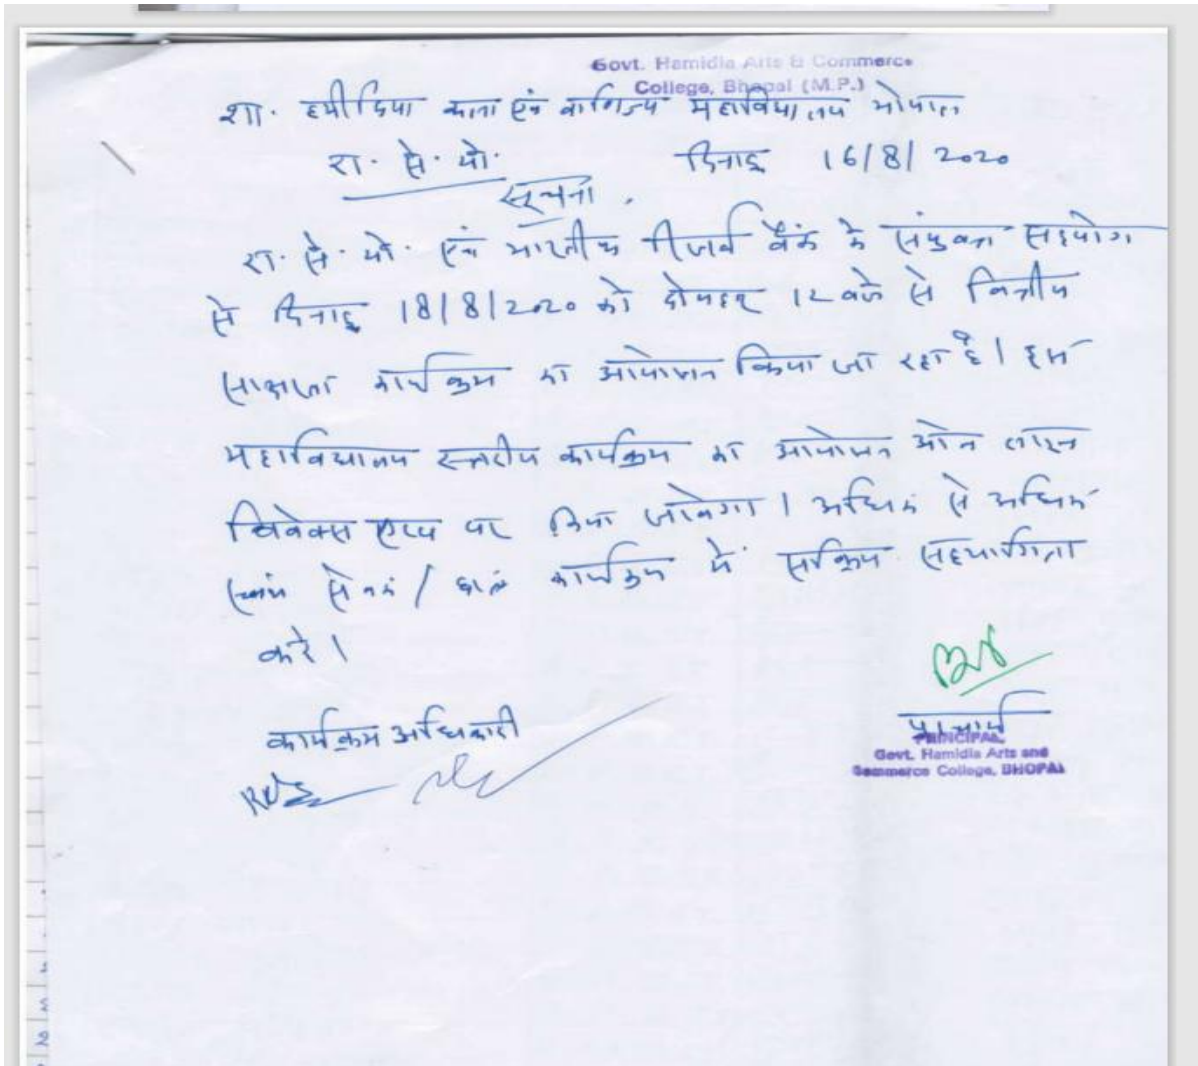 Govt. Hamidia Arts & Commerce
College, Bhopal (M.P.)
शा. हमीदिया कला एवं वाणिज्य महाविद्यालय भोपाल
रा. से. यो. दिनांक 16/8/2020
सूचना.
रा. से. यो. एवं भारतीय रिजर्व बैंक के संयुक्त सहयोग
से दिनांक 18/8/2020 को दोपहर 12 बजे से वित्तीय
साक्षरता कार्यक्रम का आयोजन किया जा रहा है। इस
महाविद्यालय स्तरीय कार्यक्रम का आयोजन ऑन लाइन
विवेक्स एप्प पर किया जावेगा। अधिक से अधिक
स्वयं सेवक / छात्र कार्यक्रम में सक्रिय सहभागिता
करे।
कार्यक्रम अधिकारी
प्राचार्य
PRINCIPAL,
Govt. Hamidia Arts and
Commerce College, BHOPAL